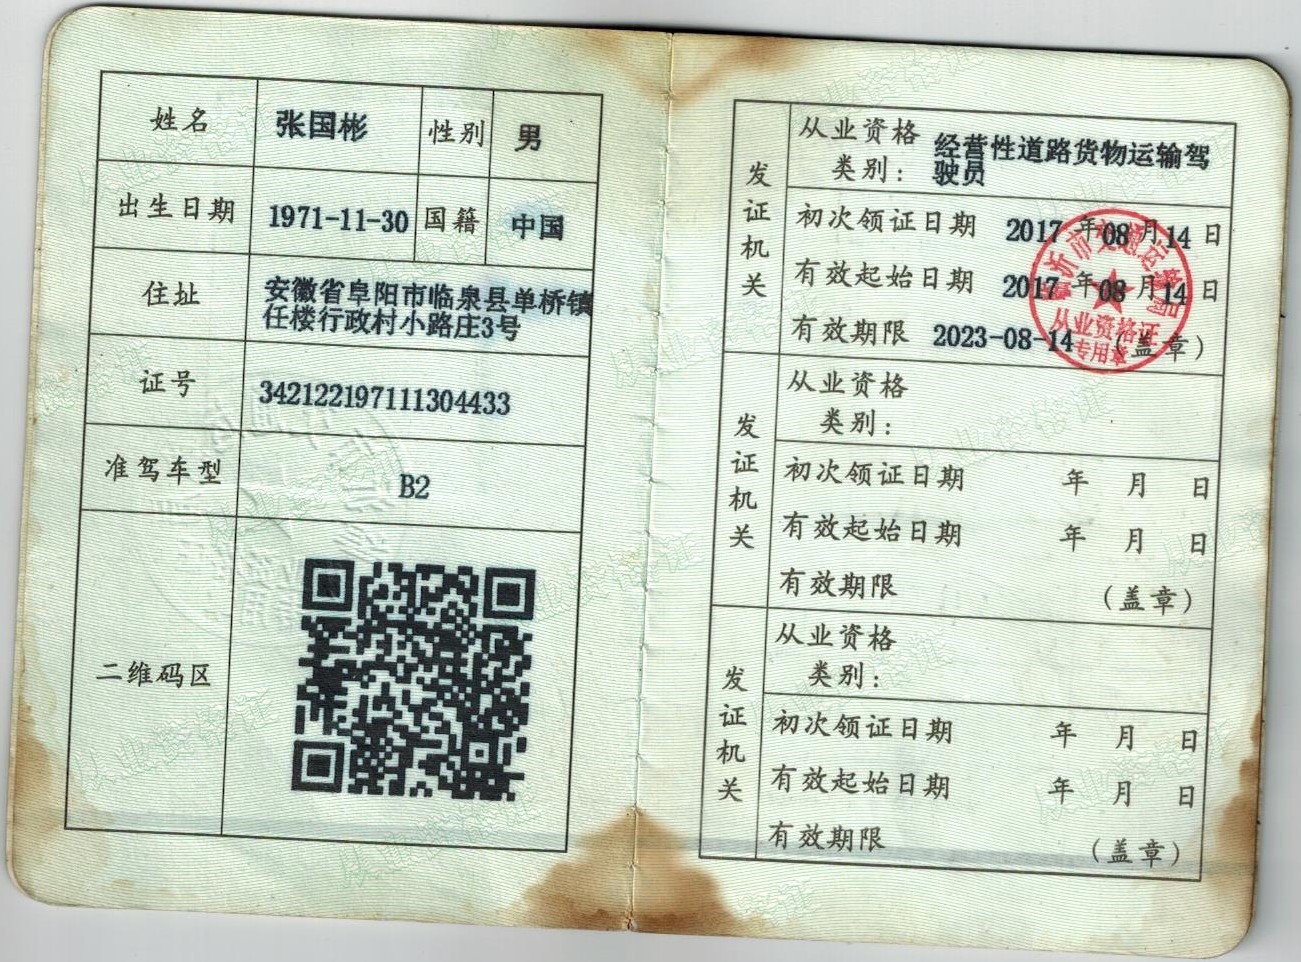 姓名 张国彬 性别 男
出生日期 1971-11-30 国籍 中国
住址 安徽省阜阳市临泉县单桥镇
任楼行政村小路庄3号
证号 342122197111304433
准驾车型 B2
二维码区
发证机关
从业资格类别： 经营性道路货物运输驾
驶员
初次领证日期 2017 年 08 月 14 日
有效起始日期 2017 年 08 月 14 日
有效期限 2023-08-14 （盖章）
从业资格证
专用章
发证机关
从业资格
类别：
初次领证日期 年 月 日
有效起始日期 年 月 日
有效期限 （盖章）
发证机关
从业资格
类别：
初次领证日期 年 月 日
有效起始日期 年 月 日
有效期限 （盖章）